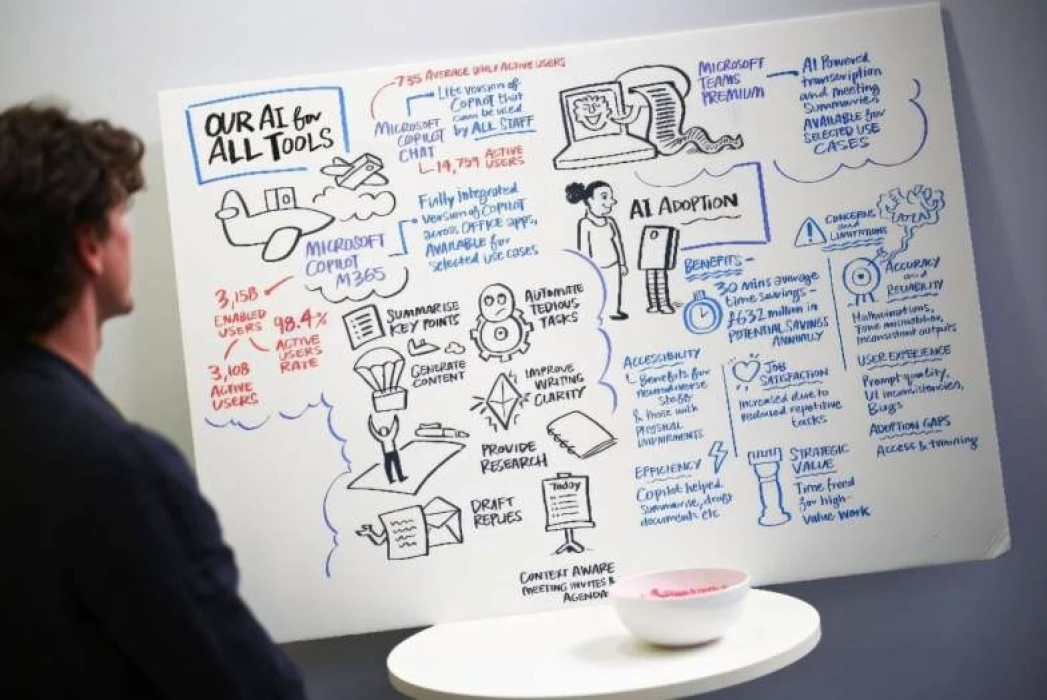 OUR AI for
ALL TOOLS
735 AVERAGE DAILY ACTIVE USERS
MICROSOFT
COPILOT
CHAT
Lite version of
COPILOT that
can be used
by ALL STAFF
14,759 ACTIVE
USERS
MICROSOFT
COPILOT
M365
Fully integrated
version of COPILOT
across OFFICE apps,
AVAILABLE for
selected use cases
3,158
ENABLED
USERS
98.4%
ACTIVE
USERS
RATE
3,108
ACTIVE
USERS
SUMMARISE
KEY POINTS
AUTOMATE
TEDIOUS
TASKS
GENERATE
CONTENT
IMPROVE
WRITING
CLARITY
PROVIDE
RESEARCH
DRAFT
REPLIES
Today
CONTEXT AWARE
MEETING INVITES &
AGENDA
MICROSOFT
TEAMS
PREMIUM
AI Powered
transcription
and meeting
Summaries
AVAILABLE for
SELECTED USE
CASES
AI ADOPTION
BENEFITS -
30 mins average
time savings -
£632 million in
POTENTIAL SAVINGS
ANNUALLY
ACCESSIBILITY
Benefits for
neurodiverse
staff
& those with
PHYSICAL
IMPAIRMENTS
JOB
SATISFACTION
Increased due to
reduced repetitive
tasks
EFFICIENCY
Copilot helped
summarise, draft
documents etc
STRATEGIC
VALUE
Time freed
for high-
value work
CONCERNS
and
LIMITATIONS
ACCURACY
and
RELIABILITY
Hallucinations,
Tone mismatches,
Inconsistent outputs
USER EXPERIENCE
Prompt quality,
UI inconsistencies,
Bugs
ADOPTION GAPS
Access & training